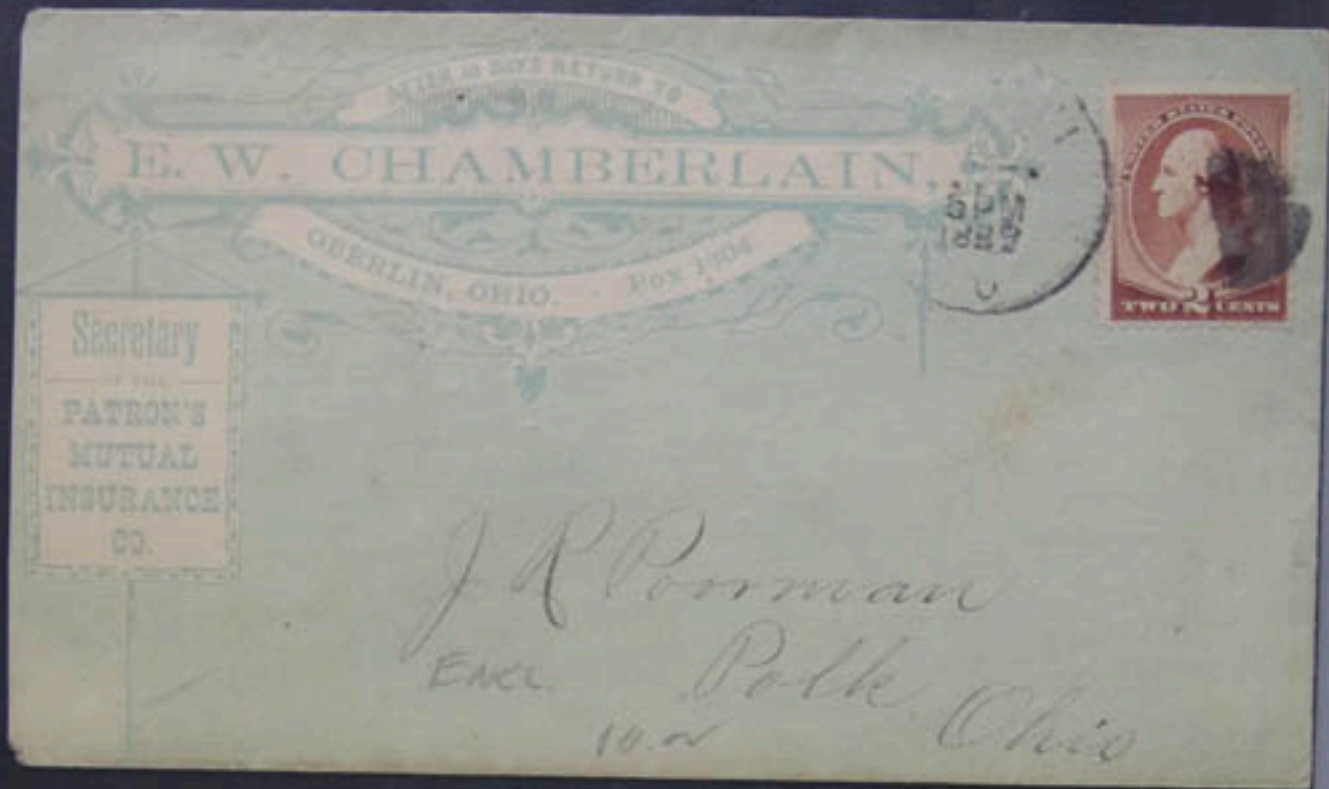 AFTER 10 DAYS RETURN TO
E. W. CHAMBERLAIN.
OBERLIN, OHIO. Box 1304.
Secretary
OF THE
PATRON'S
MUTUAL
INSURANCE
CO.
UNITED STATES POSTAGE
TWO 2 CENTS
J R Poorman
Encl. Polk
Ohio